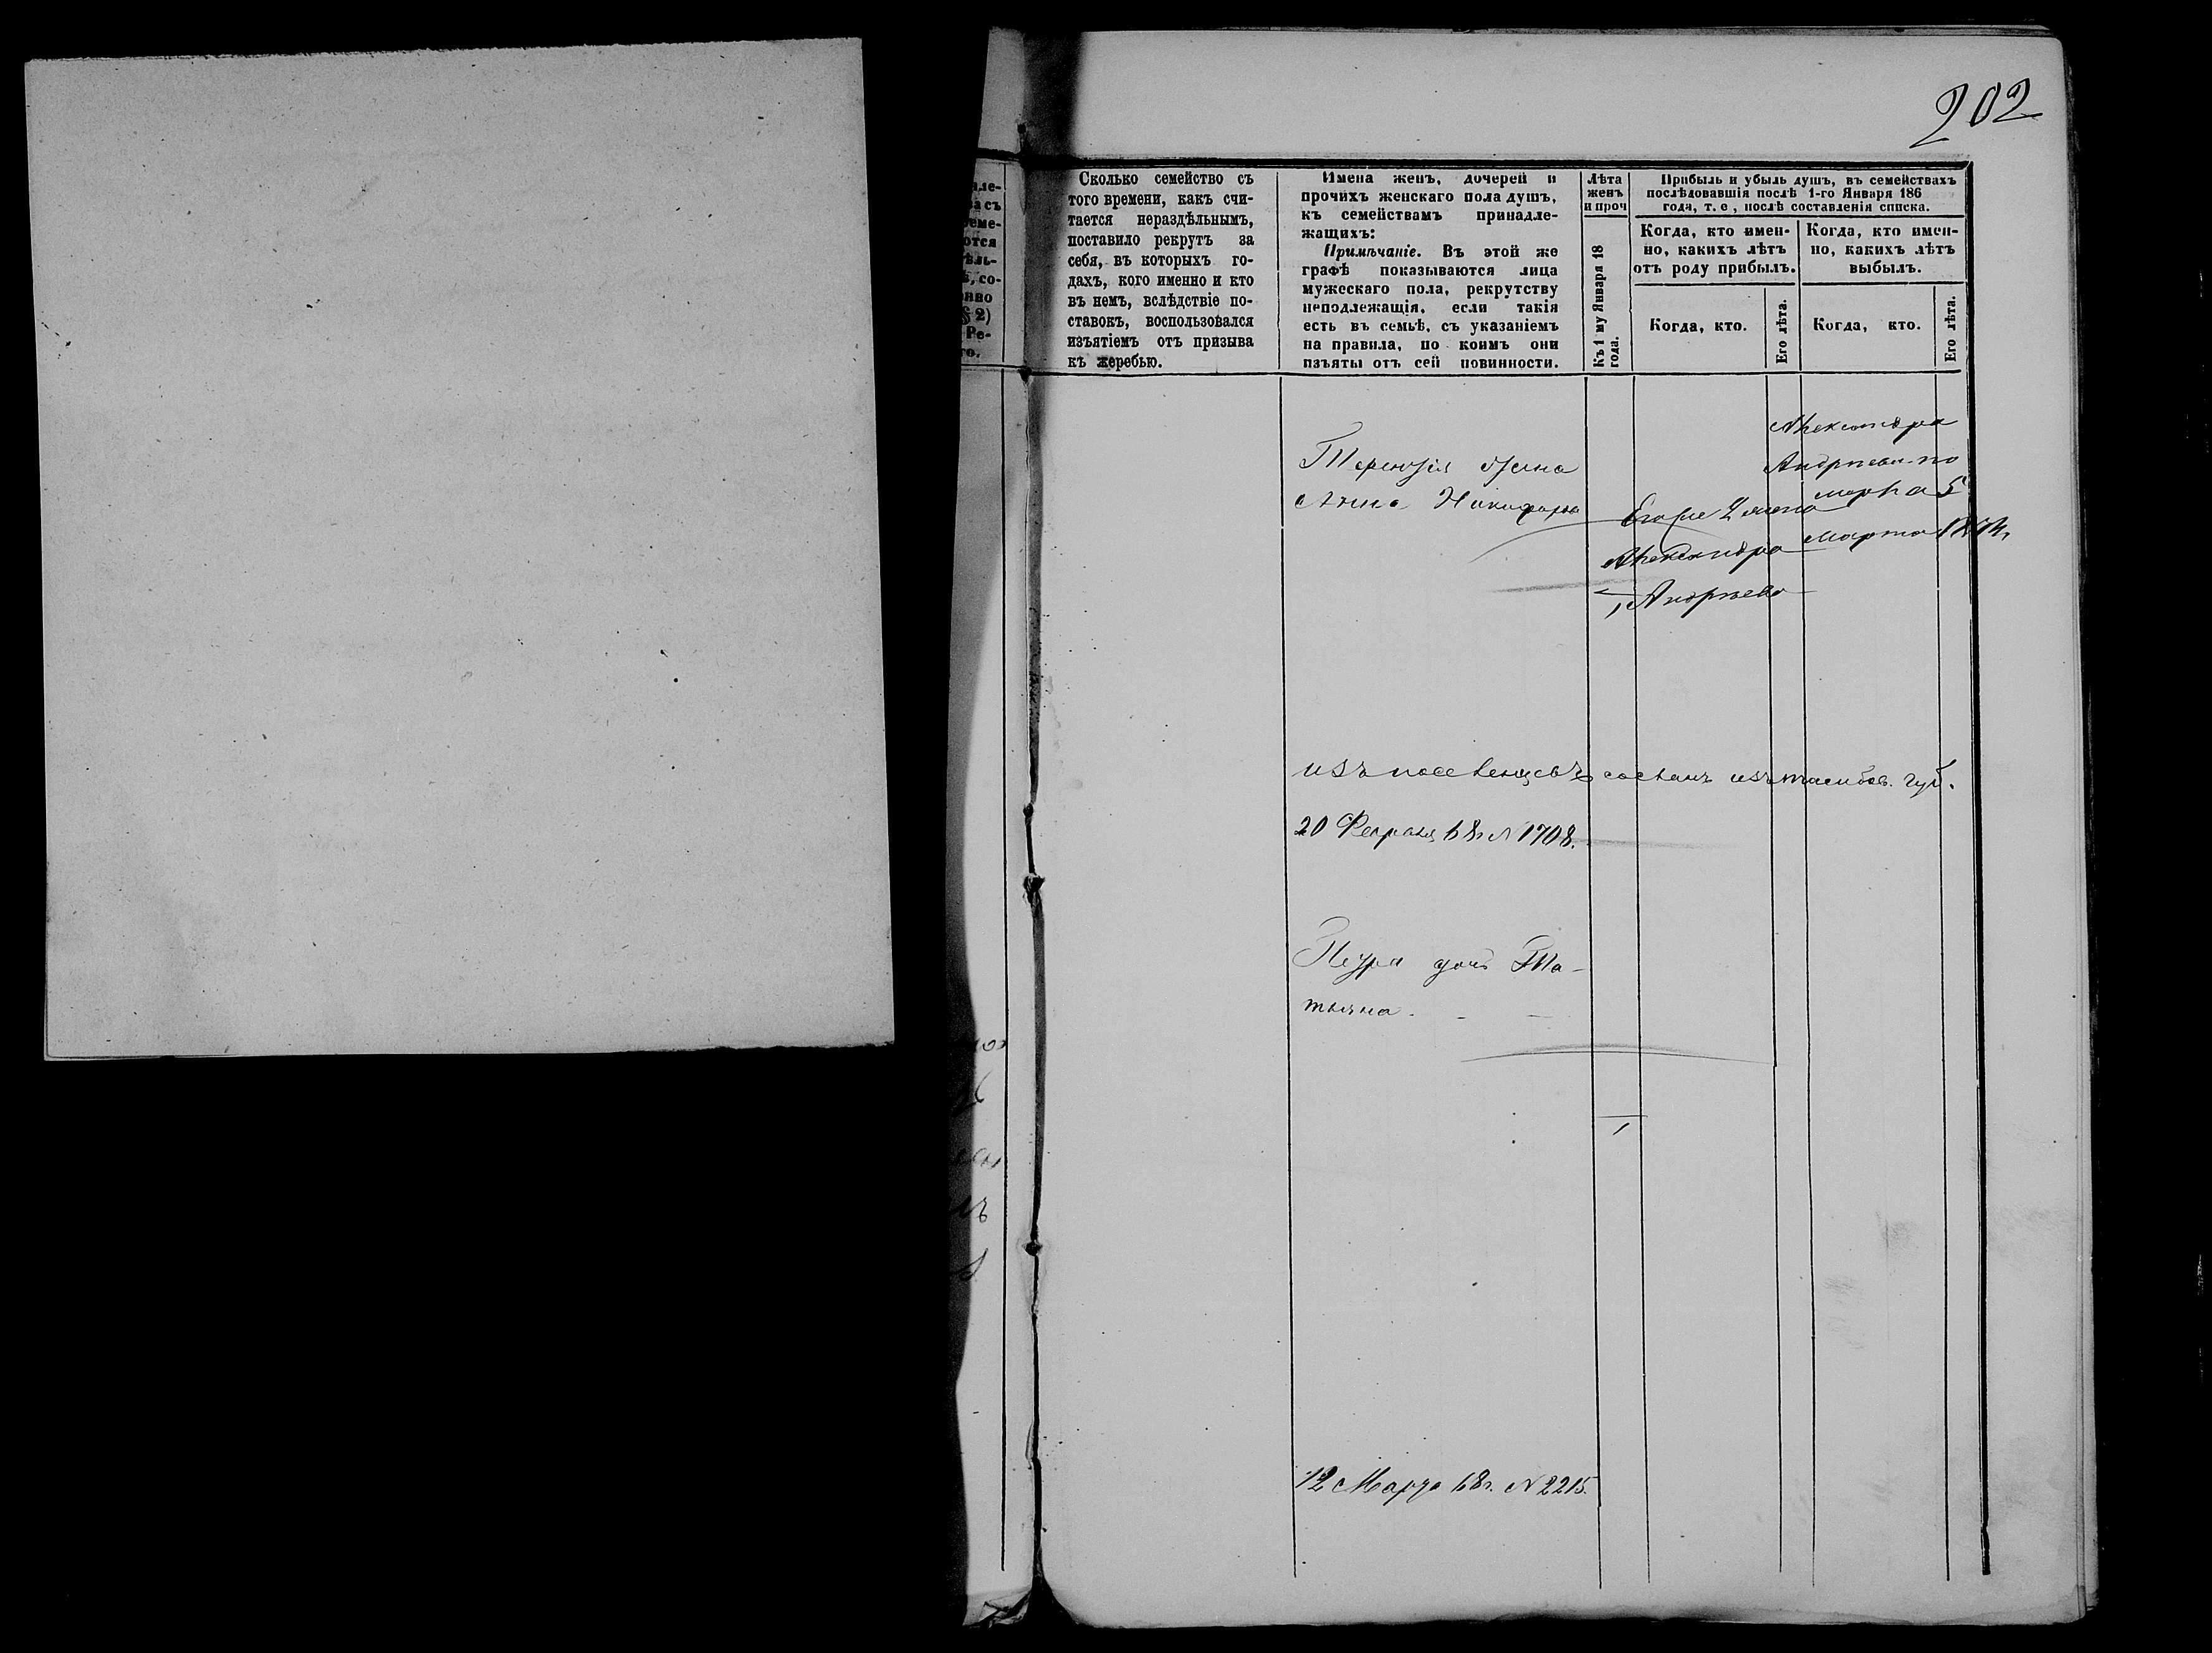 202
Сколько семейство съ
того времени, какъ счи-
тается нераздѣльнымъ,
поставило рекрутъ за
себя, въ которыхъ го-
дахъ, кого именно и кто
въ немъ, вслѣдствіе по-
ставокъ, воспользовался
изъятіемъ отъ призыва
къ жеребью.
Имена женъ, дочерей и
прочихъ женскаго пола душъ,
къ семействамъ принадле-
жащихъ:
Примѣчаніе. Въ этой же
графѣ показываются лица
мужескаго пола, рекрутству
неподлежащія, если такія
есть въ семьѣ, съ указаніемъ
на правила, по коимъ они
изъяты отъ сей повинности.
Лѣта
женъ
и проч
Къ 1 му Января 18
года.
Прибыль и убыль душъ, въ семействахъ
послѣдовавшія послѣ 1-го Января 186
года, т. е., послѣ составленія списка.
Когда, кто имен-
но, какихъ лѣтъ
отъ роду прибылъ.
Когда, кто имен-
но, какихъ лѣтъ
выбылъ.
Когда, кто.
Его лѣта.
Когда, кто.
Его лѣта.
Терентія жена
Анна Никифорова
Александра
Андреева
Марта 187
Александра
Андреева
изъ поселенцевъ сосланъ изъ тамбов. губ.
20 Февраля 68г N 1708.
Петра дочь Та-
тьяна - - -
12 Марта 68г. N 2215.